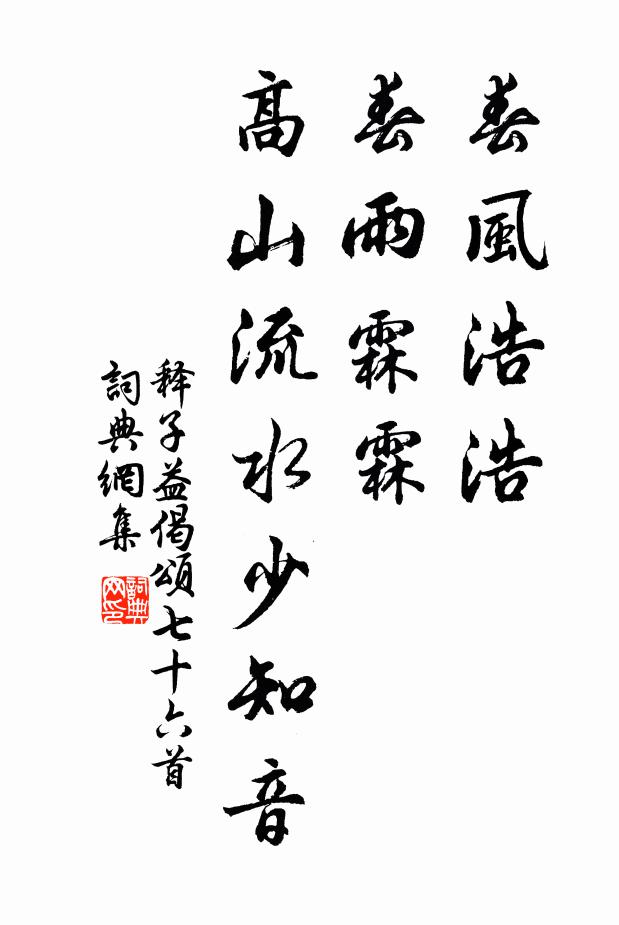 春風浩浩
春雨霖霖
高山流水少知音
释子益偈頌七十六首
詞典網集
詞典网印